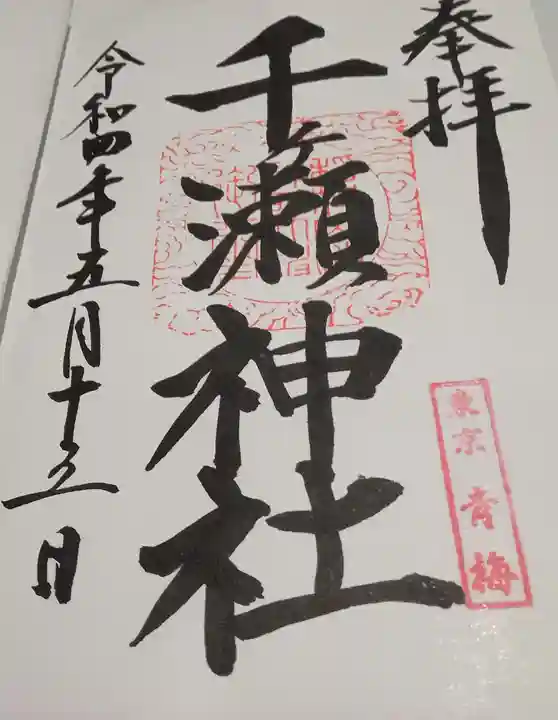 奉拝
東京 青梅
千ヶ瀬神社
令和四年五月十五日